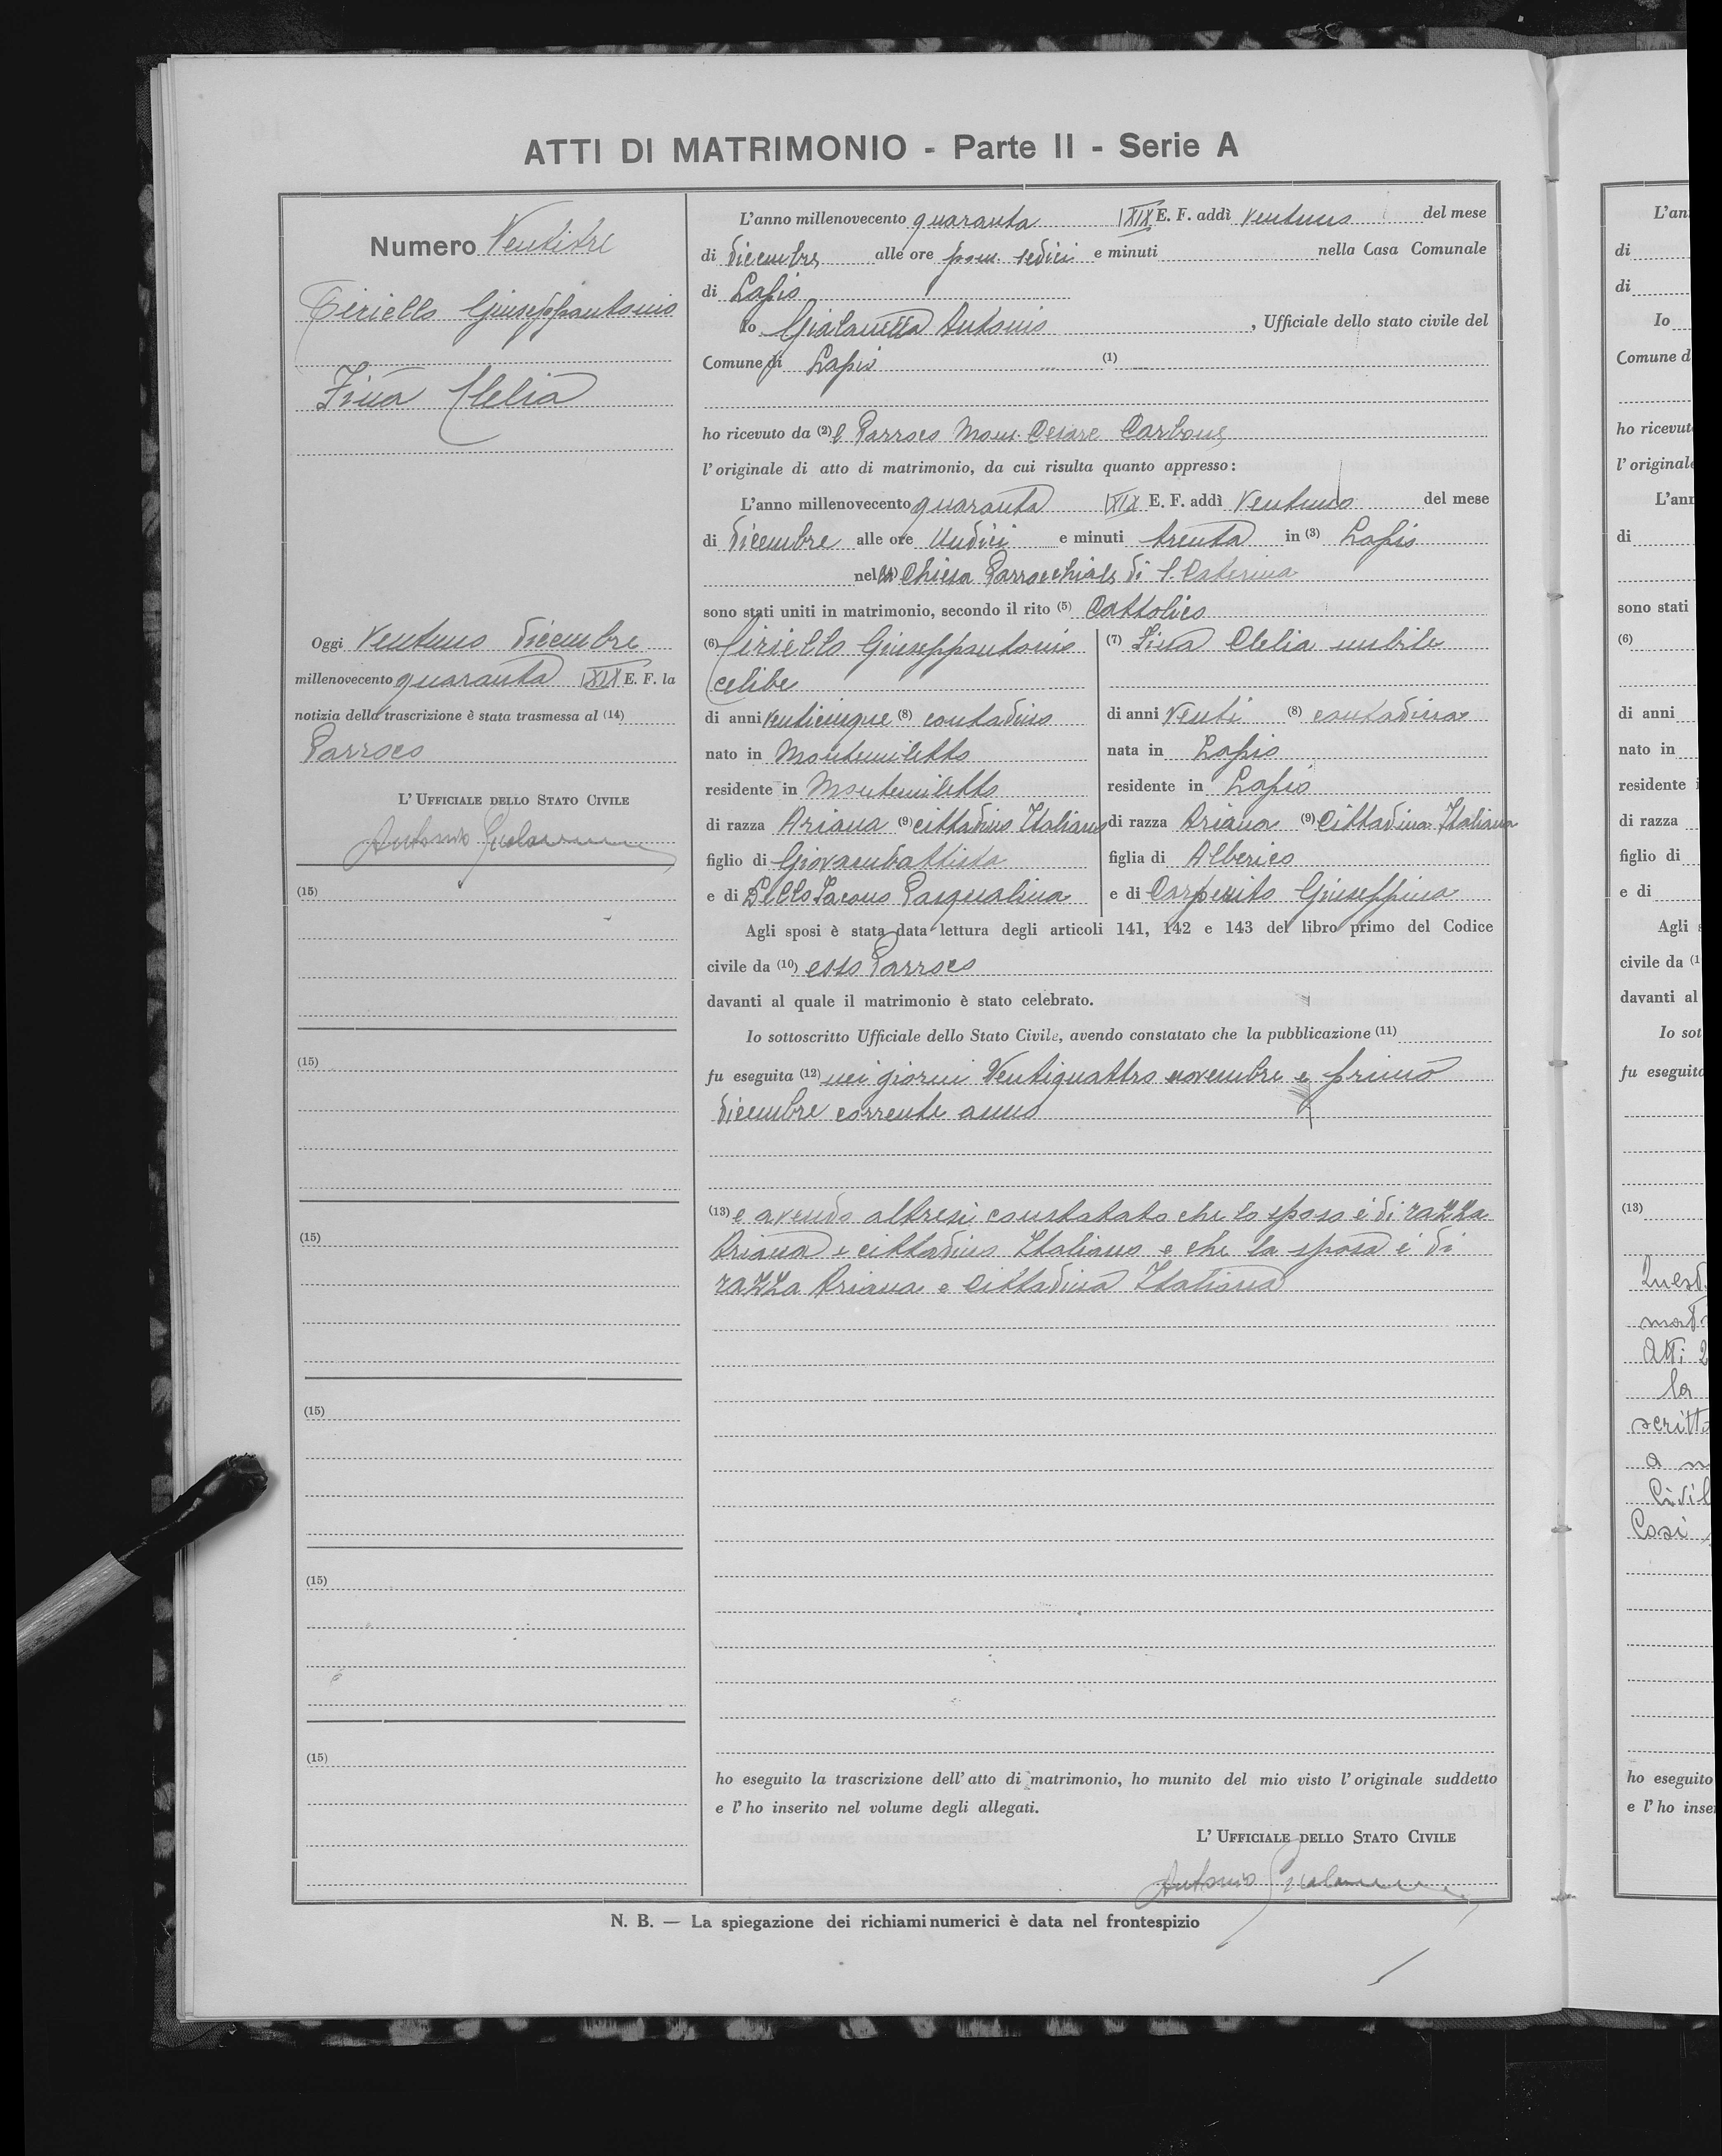 ATTI DI MATRIMONIO - Parte II - Serie A
Numero Ventitre
Ciriello Giuseppantonio
Fina Clelia
Oggi Ventuno dicembre
millenovecento quaranta XIX E. F. la
notizia della trascrizione è stata trasmessa al (14)
Parroco
L' UFFICIALE DELLO STATO CIVILE
Antonio
(15)
(15)
(15)
(15)
(15)
(15)
L'anno millenovecento quaranta XIX E. F. addì ventuno del mese
di dicembre alle ore pom. sedici e minuti nella Casa Comunale
di Lapio
Io Antonio , Ufficiale dello stato civile del
Comune di Lapio (1)
ho ricevuto da (2) l Parroco Mons. Cesare Carbone
l'originale di atto di matrimonio, da cui risulta quanto appresso:
L'anno millenovecento quaranta XIX E. F. addì Ventuno del mese
di dicembre alle ore Undici e minuti trenta in (3) Lapio
nella (4) Chiesa Parrocchiale di S. Caterina
sono stati uniti in matrimonio, secondo il rito (5) Cattolico
(6) Ciriello Giuseppantonio
celibe
di anni venticinque (8) contadino
nato in Montemiletto
residente in Montemiletto
di razza Ariana (9) cittadino Italiano
figlio di Giovambattista
e di Dello Iacono Pasqualina
(7) Fina Clelia nubile
di anni Venti (8) contadina
nata in Lapio
residente in Lapio
di razza Ariana (9) Cittadina Italiana
figlia di Alberico
e di Carpenito Giuseppina
Agli sposi è stata data lettura degli articoli 141, 142 e 143 del libro primo del Codice
civile da (10) esso Parroco
davanti al quale il matrimonio è stato celebrato.
Io sottoscritto Ufficiale dello Stato Civile, avendo constatato che la pubblicazione (11)
fu eseguita (12) nei giorni Ventiquattro novembre e primo
dicembre corrente anno
(13) e avendo altresì constatato che lo sposo è di razza
Ariana e cittadino Italiano e che la sposa è di
razza Ariana e Cittadina Italiana
ho eseguito la trascrizione dell'atto di matrimonio, ho munito del mio visto l'originale suddetto
e l'ho inserito nel volume degli allegati.
L' UFFICIALE DELLO STATO CIVILE
Antonio
N. B. — La spiegazione dei richiami numerici è data nel frontespizio
L'an
di
di
Io
Comune d
ho ricevut
l'originale
L'ann
di
sono stati
(6)
di anni
nato in
residente i
di razza
figlio di
e di
Agli s
civile da (1
davanti al
Io sot
fu eseguito
(13)
Quest
mat
Atti 2
la
scritto
a m
Civil
Così
ho eseguito
e l'ho inser